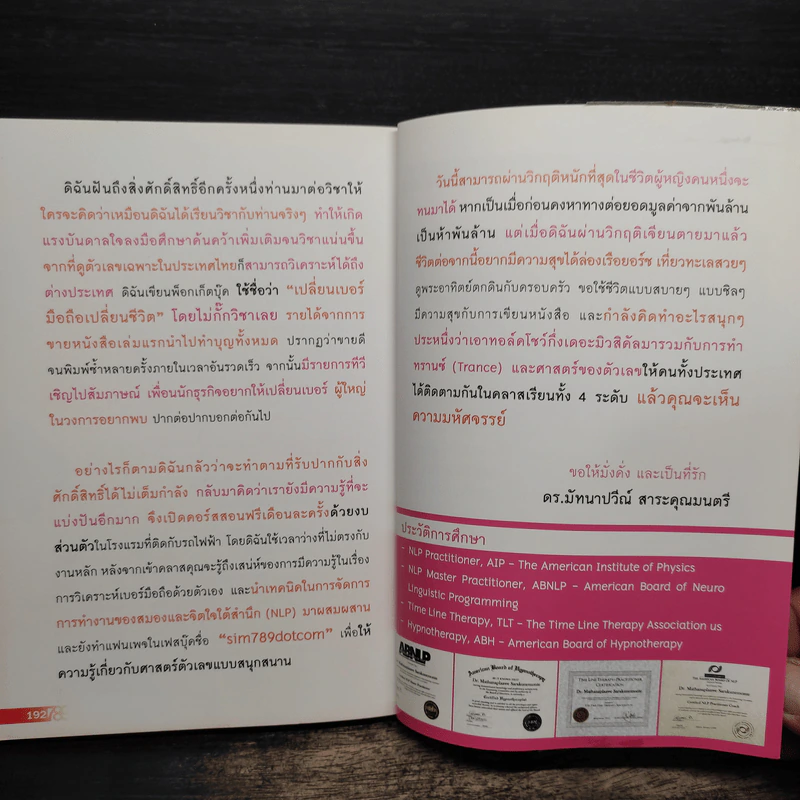 ดิฉันฝันถึงสิ่งศักดิ์สิทธิ์อีกครั้งหนึ่งท่านมาต่อวิชาให้
ใครจะคิดว่าเหมือนดิฉันได้เรียนวิชากับท่านจริงๆ ทำให้เกิด
แรงบันดาลใจลงมือศึกษาค้นคว้าเพิ่มเติมจนวิชาแน่นขึ้น
จากที่ดูตัวเลขเฉพาะในประเทศไทยก็สามารถวิเคราะห์ได้ถึง
ต่างประเทศ ดิฉันเขียนพ็อกเก็ตบุ๊ค ใช้ชื่อว่า "เปลี่ยนเบอร์
มือถือเปลี่ยนชีวิต" โดยไม่กั๊กวิชาเลย รายได้จากการ
ขายหนังสือเล่มแรกนำไปทำบุญทั้งหมด ปรากฏว่าขายดี
จนพิมพ์ซ้ำหลายครั้งภายในเวลาอันรวดเร็ว จากนั้นมีรายการทีวี
เชิญไปสัมภาษณ์ เพื่อนนักธุรกิจอยากให้เปลี่ยนเบอร์ ผู้ใหญ่
ในวงการอยากพบ ปากต่อปากบอกต่อกันไป
อย่างไรก็ตามดิฉันกลัวว่าจะทำตามที่รับปากกับสิ่ง
ศักดิ์สิทธิ์ได้ไม่เต็มกำลัง กลับมาคิดว่าเรายังมีความรู้ที่จะ
แบ่งปันอีกมาก จึงเปิดคอร์สสอนฟรีเดือนละครั้งด้วยงบ
ส่วนตัวในโรงแรมที่ติดกับรถไฟฟ้า โดยดิฉันใช้เวลาว่างที่ไม่ตรงกับ
งานหลัก หลังจากเข้าคลาสคุณจะรู้ถึงเสน่ห์ของการมีความรู้ในเรื่อง
การวิเคราะห์เบอร์มือถือด้วยตัวเอง และนำเทคนิคในการจัดการ
การทำงานของสมองและจิตใจใต้สำนึก (NLP) มาผสมผสาน
และยังทำแฟนเพจในเฟสบุ๊คชื่อ "sim789dotcom" เพื่อให้
ความรู้เกี่ยวกับศาสตร์ตัวเลขแบบสนุกสนาน
192
วันนี้สามารถผ่านวิกฤติหนักที่สุดในชีวิตผู้หญิงคนหนึ่งจะ
ทนมาได้ หากเป็นเมื่อก่อนคงหาทางต่อยอดมูลค่าจากพันล้าน
เป็นห้าพันล้าน แต่เมื่อดิฉันผ่านวิกฤติเจียนตายมาแล้ว
ชีวิตต่อจากนี้อยากมีความสุขได้ล่องเรือยอร์ช เที่ยวทะเลสวยๆ
ดูพระอาทิตย์ตกดินกับครอบครัว ขอใช้ชีวิตแบบสบายๆ แบบชิลๆ
มีความสุขกับการเขียนหนังสือ และกำลังคิดทำอะไรสนุกๆ
ประหนึ่งว่าเอาทอล์คโชว์กึ่งเดอะมิวสิคัลมารวมกับการทำ
ทรานซ์ (Trance) และศาสตร์ของตัวเลขให้คนทั้งประเทศ
ได้ติดตามกันในคลาสเรียนทั้ง 4 ระดับ แล้วคุณจะเห็น
ความมหัศจรรย์
ขอให้มั่งคั่ง และเป็นที่รัก
ดร.มัทนาปวีณ์ สาระคุณมนตรี
ประวัติการศึกษา
- NLP Practitioner, AIP - The American Institute of Physics
- NLP Master Practitioner, ABNLP - American Board of Neuro
Linguistic Programming
- Time Line Therapy, TLT - The Time Line Therapy Association us
- Hypnotherapy, ABH - American Board of Hypnotherapy
ABNLP
American Board of Hypnotherapy